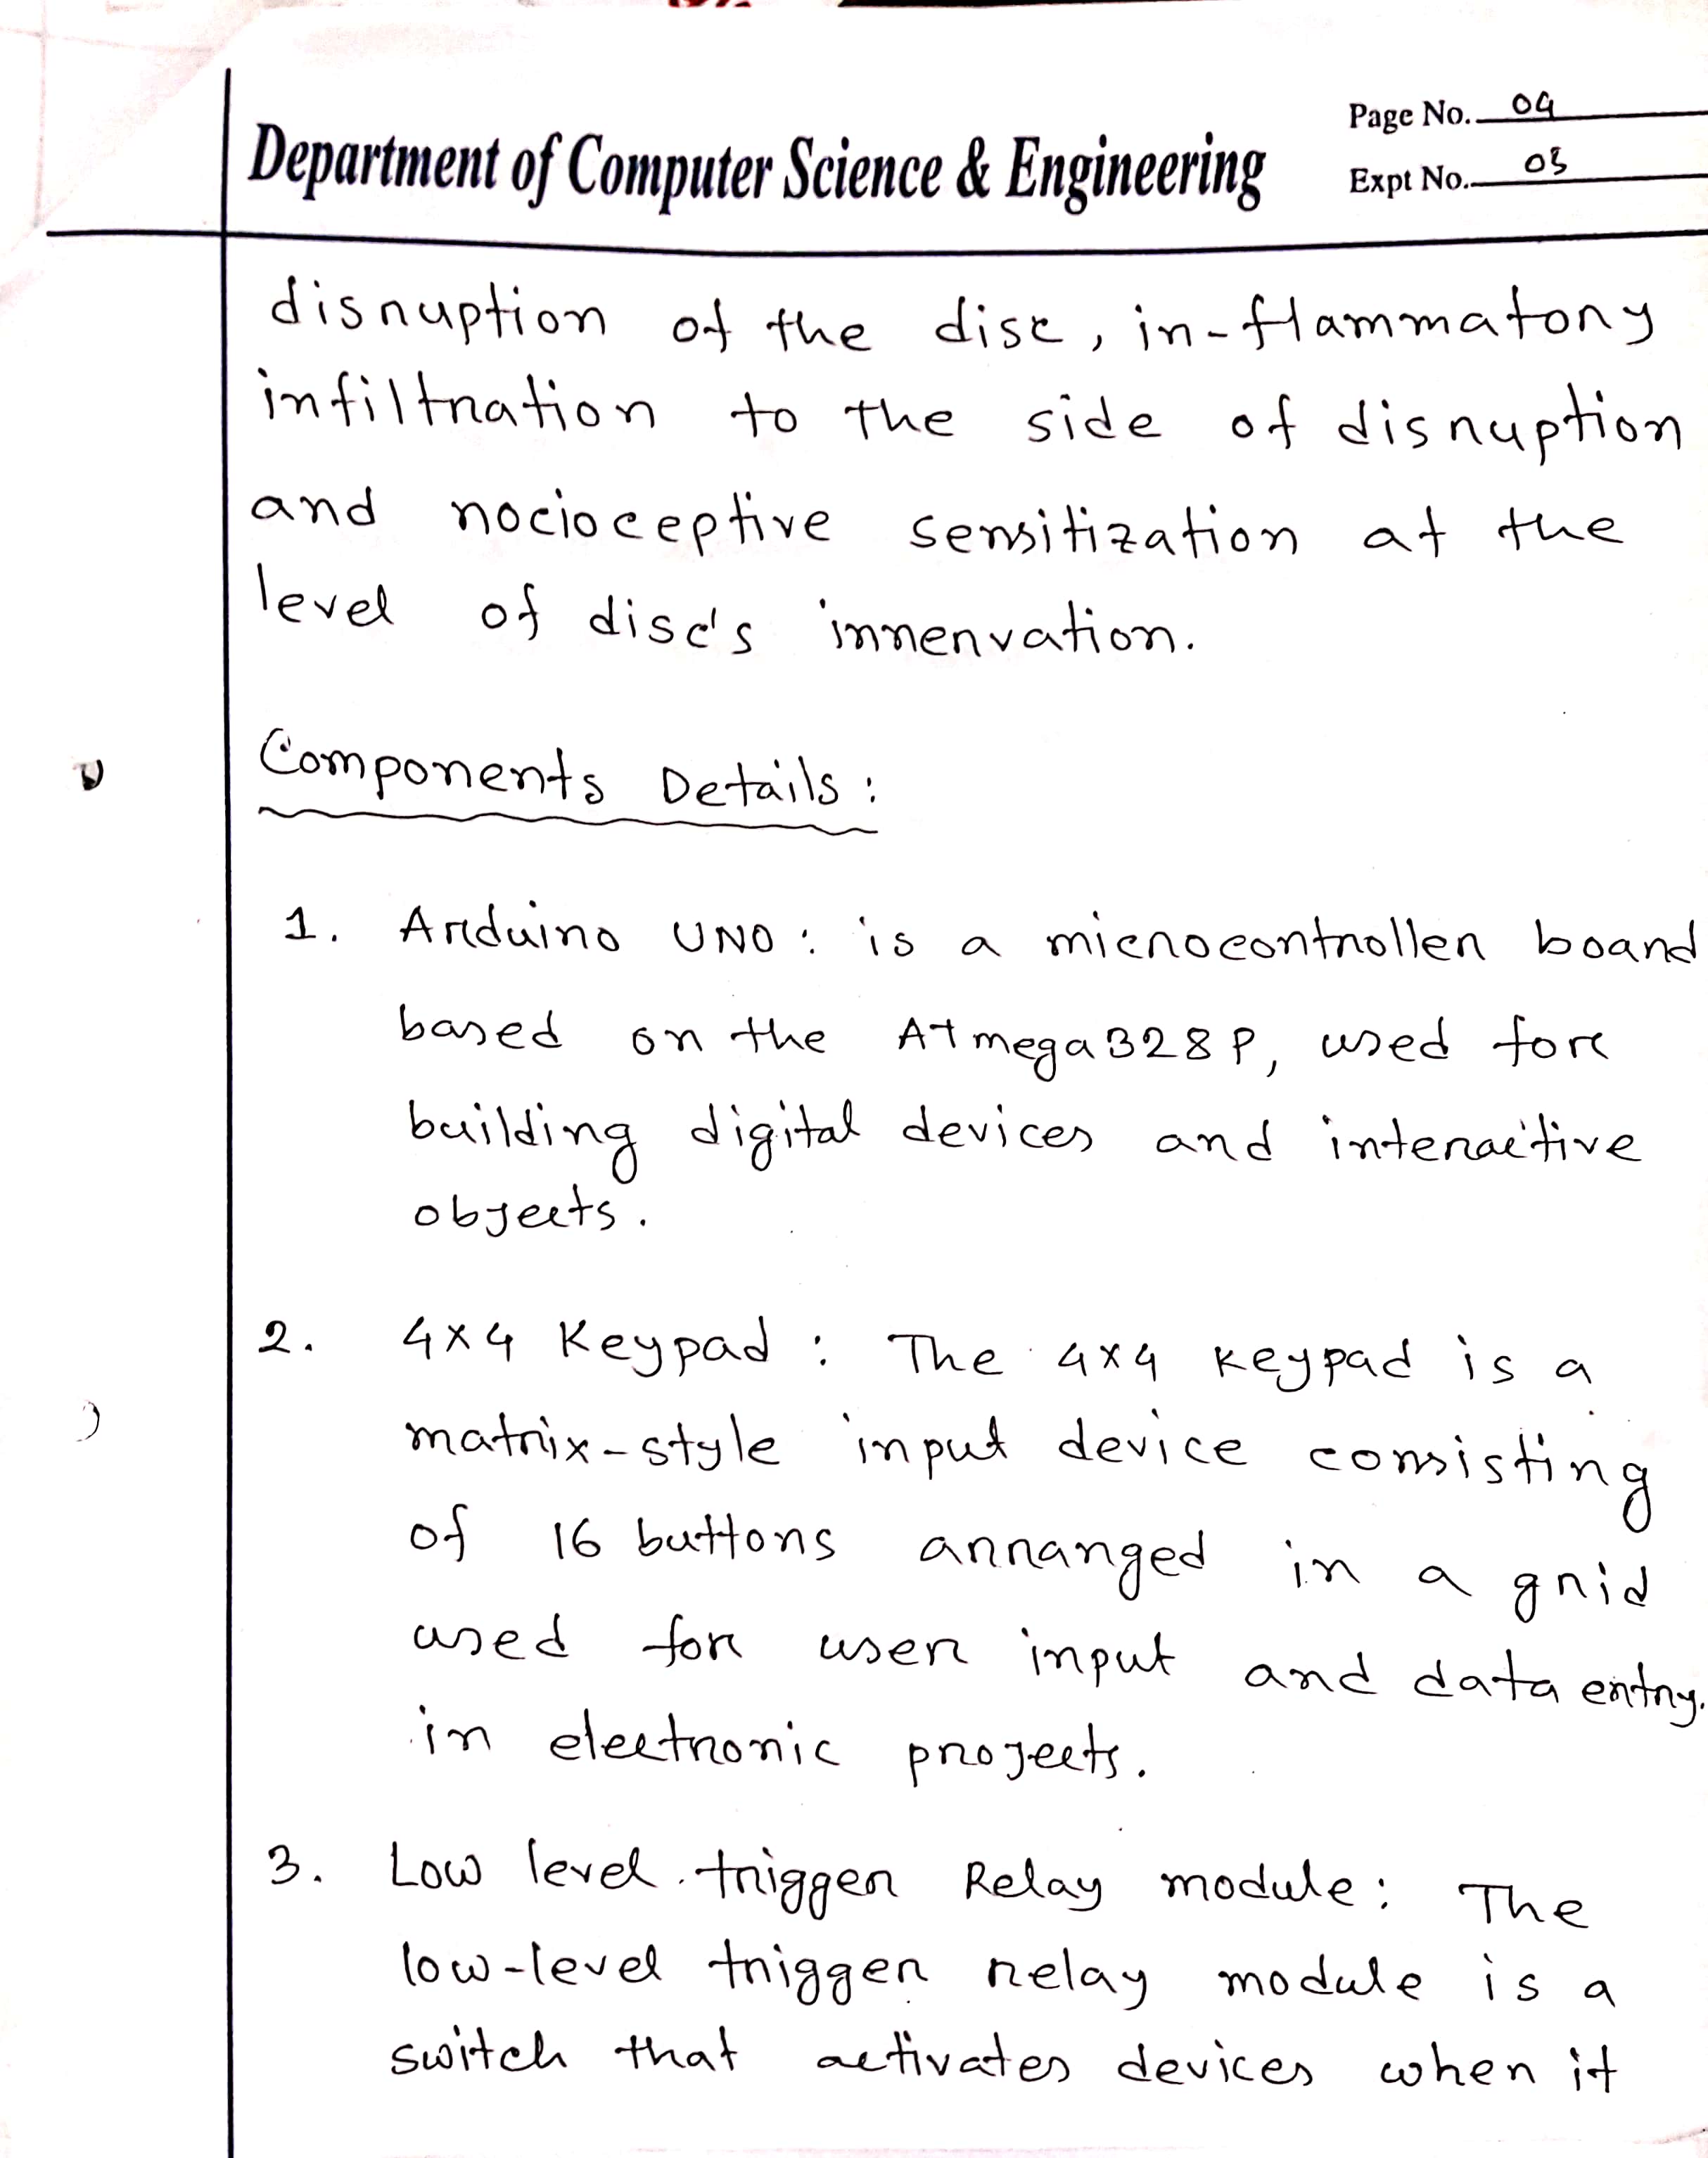 Department of Computer Science & Engineering
Page No. 04
Expt No. 03
disruption of the disc, in-flammatory
infiltration to the side of disruption
and nocioceptive sensitization at the
level of disc's innervation.
Components Details :
1. Arduino UNO : is a microcontroller board
based on the ATmega328P, used for
building digital devices and interactive
objects.
2. 4x4 Keypad : The 4x4 keypad is a
matrix-style input device consisting
of 16 buttons arranged in a grid
used for user input and data entry.
in electronic projects.
3. Low level trigger Relay module : The
low-level trigger relay module is a
switch that activates devices when it